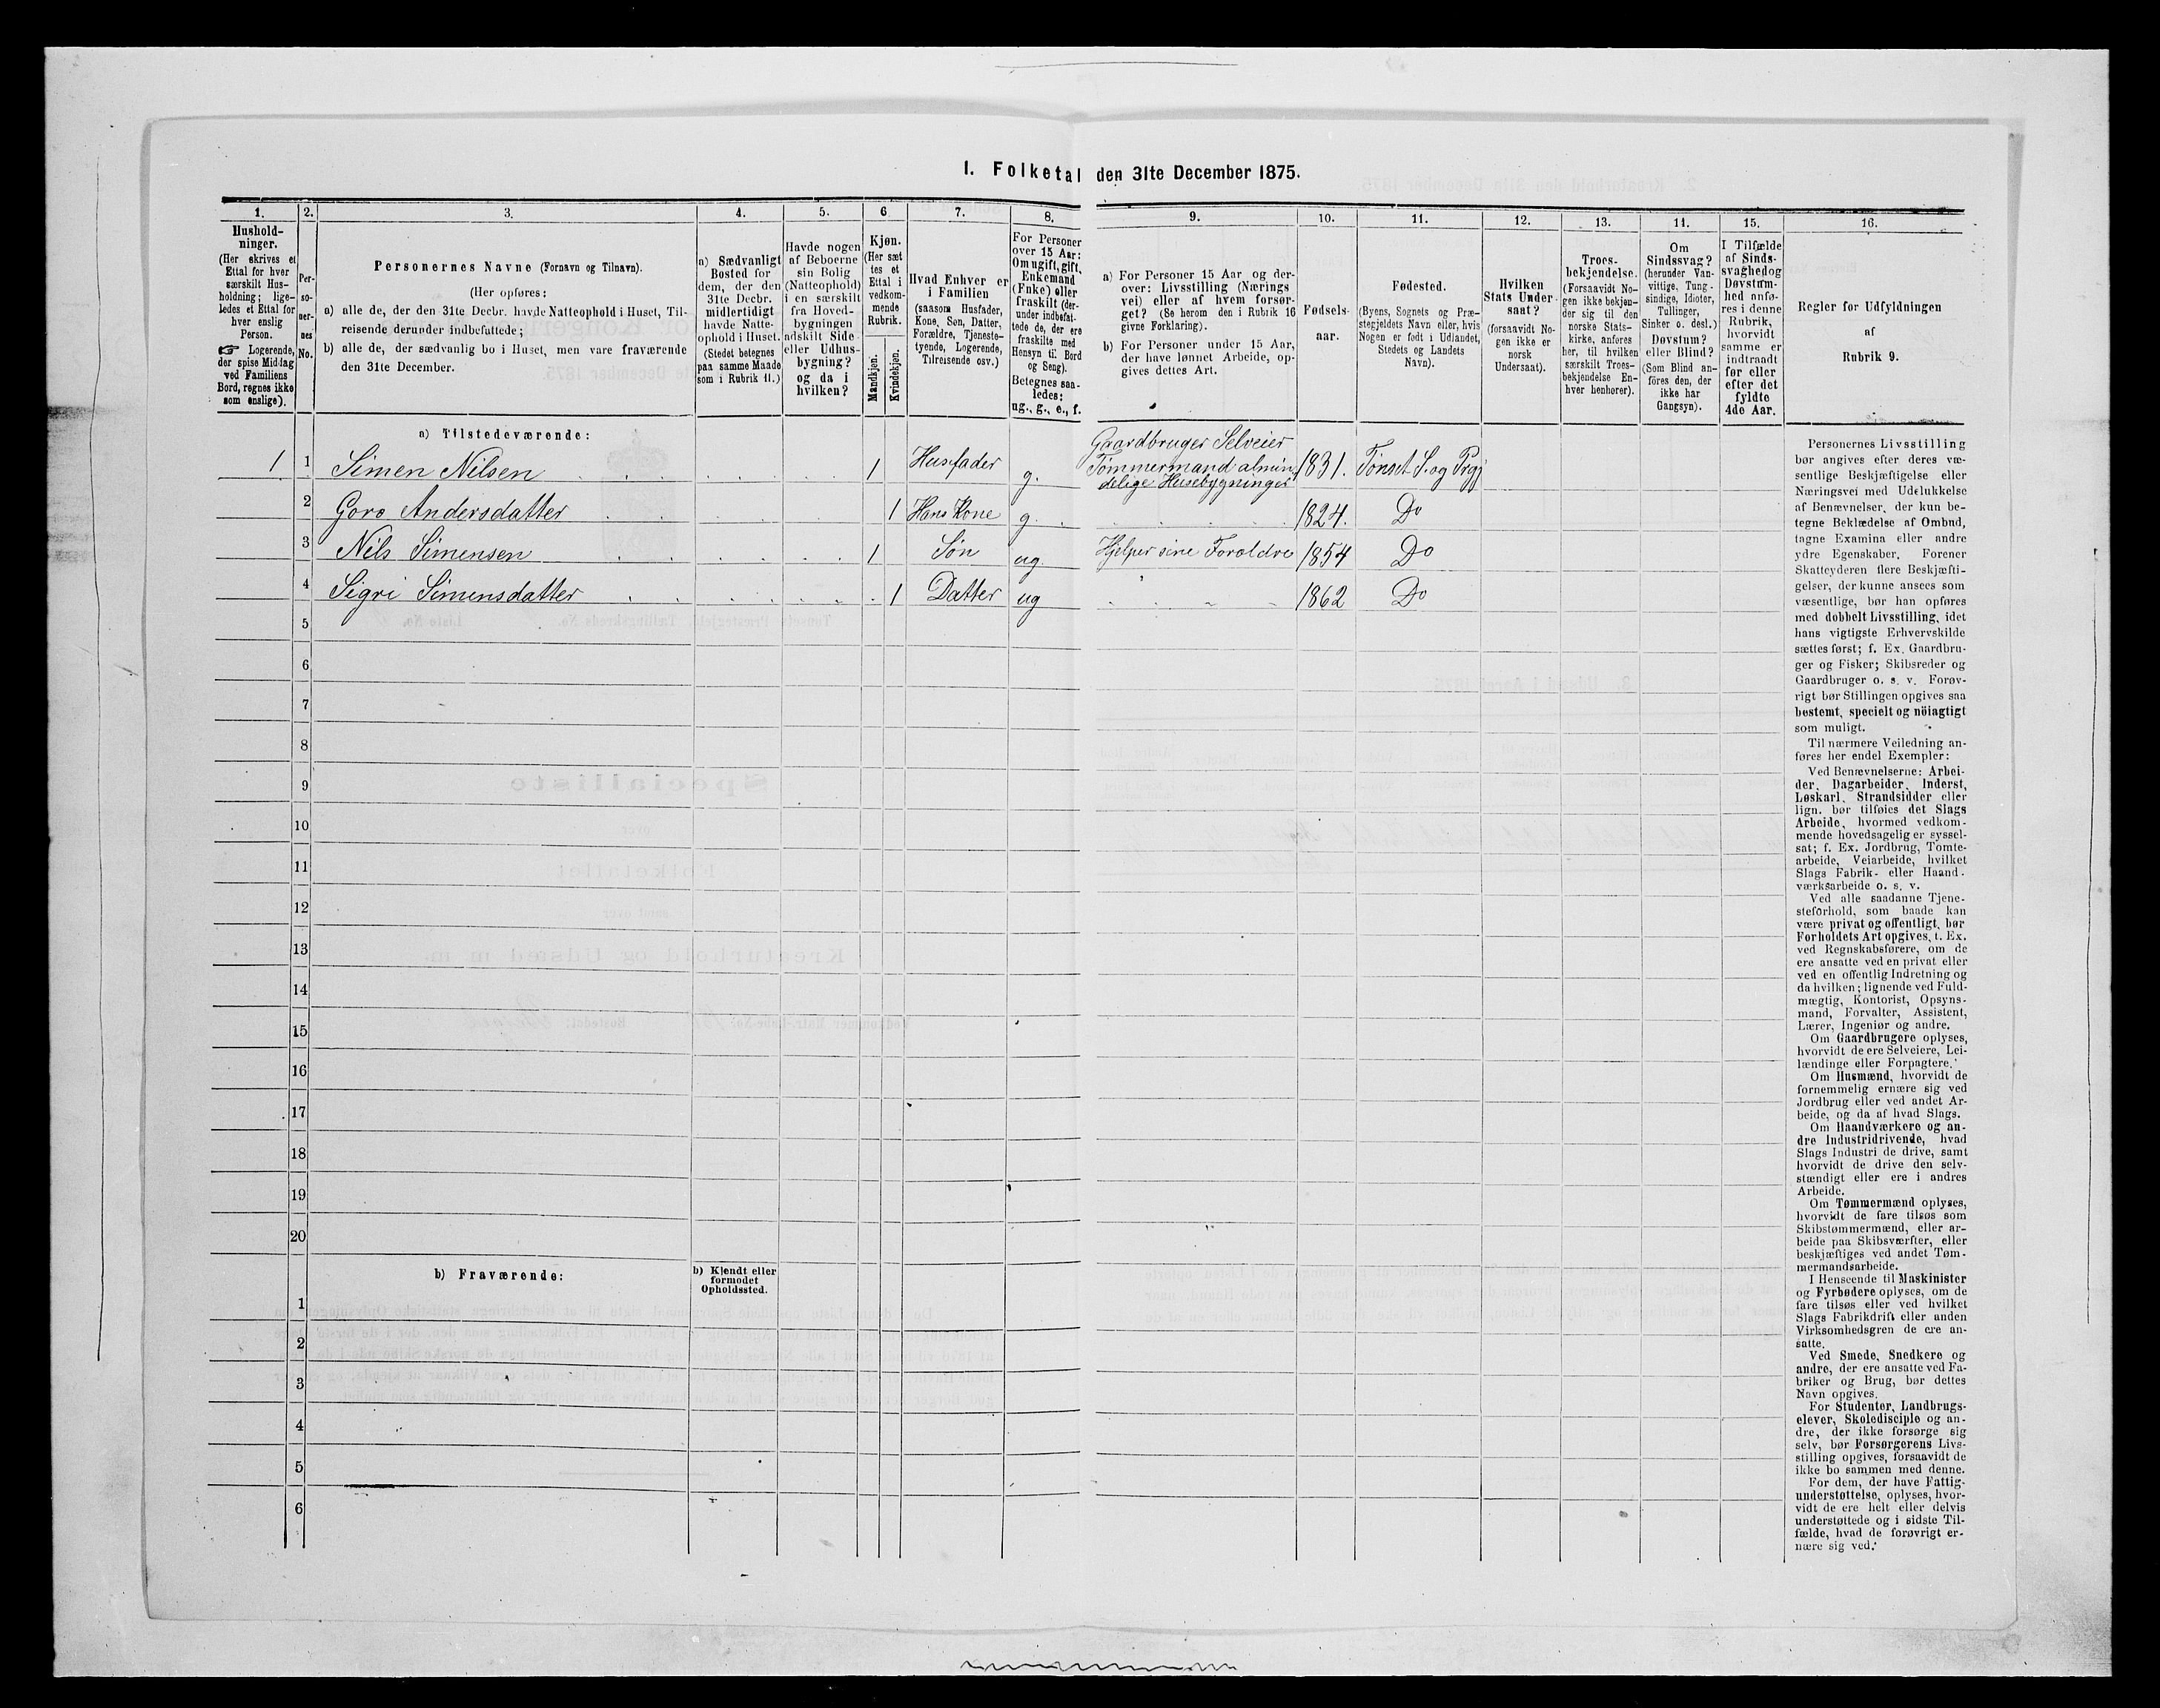 1. Folketal den 31te December 1875.
1.
2.
3.
4.
5.
6
7.
8.
9.
10.
11.
12.
13.
14.
15.
16.
Hushold-
ninger.
(Her skrives et
Ettal for hver
særskilt Hus-
holdning; lige-
ledes et Ettal for
hver enslig
Person.
☞ Logerende,
der spise Middag
ved Familiens
Bord, regnes ikke
som enslige).
Per-
so-
ner-
nes
No.
Personernes Navne (Fornavn og Tilnavn).
(Her opføres:
a) alle de, der den 31te Decbr. havde Natteophold i Huset, Til-
reisende derunder indbefattede;
b) alle de, der sædvanlig bo i Huset, men vare fraværende
den 31te December.
a) Sædvanligt
Bosted for
dem, der den
31te Decbr.
midlertidigt
havde Natte-
ophold i Huset.
(Stedet betegnes
paa samme Maade
som i Rubrik 11.)
Havde nogen
af Beboerne
sin Bolig
(Natteophold)
i en særskilt
fra Hoved-
bygningen
adskilt Side-
eller Udhus-
bygning?
og da i
hvilken?
Kjøn.
(Her sæt
tes et
Ettal i
vedkom-
mende
Rubrik.
Mandkjøn.
Kvindekjøn.
Hvad Enhver er
i Familien
(saasom Husfader,
Kone, Søn, Datter,
Forældre, Tjeneste-
tyende, Logerende,
Tilreisende osv.)
For Personer
over 15 Aar:
Om ugift, gift,
Enkemand
(Enke) eller
fraskilt (der-
under indbefat-
tede de, der ere
fraskilte med
Hensyn til Bord
og Seng).
Betegnes saa-
ledes:
ug., g., e., f.
a) For Personer 15 Aar og der-
over: Livsstilling (Nærings
vei) eller af hvem forsør-
get? (Se herom den i Rubrik 16
givne Forklaring).
b) For Personer under 15 Aar,
der have lønnet Arbeide, op-
gives dettes Art.
Fødsels-
aar.
Fødested.
(Byens, Sognets og Præ-
stegjeldets Navn eller, hvis
Nogen er født i Udlandet,
Stedets og Landets
Navn).
Hvilken
Stats Under-
saat?
(forsaavidt No-
gen ikke er
norsk
Undersaat).
Troes-
bekjendelse.
(Forsaavidt No-
gen ikke bekjen-
der sig til den
norske Stats-
kirke, anføres
her, til hvilken
særskilt Troes-
bekjendelse En-
hver henhører).
Om
Sindssvag?
(herunder Van-
vittige, Tung-
sindige, Idioter,
Tullinger,
Sinker o. desl.)
Døvstum?
eller Blind?
(Som Blind an-
føres den, der
ikke har
Gangsyn).
I Tilfælde
af Sinds-
svaghed og
Døvstum-
hed anfø-
res i denne
Rubrik,
hvorvidt
samme er
indtraadt
før eller
efter det
fyldte
4de Aar.
Regler for Udfyldningen
af
Rubrik 9.
a) Tilstedeværende:
Gaardbruger Selveier
1 1 Simen Nilsen 1 Husfader g. Tømmermand almin 1831. Tønset S. og Prgj
delige Husebygninger
2 Goro Andersdatter 1 Hans Kone g. 1824. Do
3 Nils Simensen 1 Søn ug. Hjelper sine Foroldre 1854 Do
4 Sigri Simensdatter 1 Datter ug 1862 Do
5
6
7
8
9
10
11
12
13
14
15
16
17
18
19
20
b) Fraværende:
b) Kjendt eller
formodet
Opholdssted.
1
2
3
4
5
6
Personernes Livsstilling
bør angives efter deres væ-
sentlige Beskjæftigelse eller
Næringsvei med Udelukkelse
af Benævnelser, der kun be-
tegne Beklædelse af Ombud,
tagne Examina eller andre
ydre Egenskaber. Forener
Skatteyderen flere Beskjæfti-
gelser, der kunne ansees som
væsentlige, bør han opføres
med dobbelt Livsstilling, idet
hans vigtigste Erhvervskilde
sættes først; f. Ex. Gaardbru-
ger og Fisker; Skibsreder og
Gaardbruger o. s. v. Forøv-
rigt bør Stillingen opgives saa
bestemt, specielt og nöiagtigt
som muligt.
Til nærmere Veiledning an-
føres her endel Exempler:
Ved Benævnelserne: Arbei-
der, Dagarbeider, Inderst,
Løskarl, Strandsidder eller
lign. bør tilføies det Slags
Arbeide, hvormed vedkom-
mende hovedsagelig er syssel-
sat; f. Ex. Jordbrug, Tomte-
arbeide, Veiarbeide, hvilket
Slags Fabrik- eller Haand-
værksarbeide o. s. v.
Ved alle saadanne Tjene-
steforhold, som baade kan
være privat og offentligt, bør
Forholdets Art opgives, t. Ex.
ved Regnskabsførere, om de
ere ansatte ved en privat eller
ved en offentlig Indretning og
da hvilken; lignende ved Fuld-
mægtig, Kontorist, Opsyns-
mand, Forvalter, Assistent,
Lærer, Ingeniør og andre.
Om Gaardbrugere oplyses,
hvorvidt de ere Selveiere, Lei-
lændinge eller Forpagtere.
Om Husmænd, hvorvidt de
fornemmelig ernære sig ved
Jordbrug eller ved andet Ar-
beide, og da af hvad Slags.
Om Haandværkere og an-
dre Industridrivende, hvad
Slags Industri de drive, samt
hvorvidt de drive den selv-
stændigt eller ere i andres
Arbeide.
Om Tømmermænd oplyses,
hvorvidt de fare tilsøs som
Skibstømmermænd, eller ar-
beide paa Skibsværfter, eller
beskjæftiges ved andet Tøm-
mermandsarbeide.
I Henseende til Maskinister
og Fyrbødere oplyses, om de
fare tilsøs eller ved hvilket
Slags Fabrikdrift eller anden
Virksomhedsgren de ere an-
satte.
Ved Smede, Snedkere og
andre, der ere ansatte ved Fa-
briker og Brug, bør dettes
Navn opgives.
For Studenter, Landbrugs-
elever, Skoledisciple og an-
dre, der ikke forsørge sig
selv, bør Forsørgerens Livs-
stilling opgives, forsaavidt de
ikke bo sammen med denne.
For dem, der have Fattig-
understøttelse, oplyses, hvor-
vidt de ere helt eller delvis
understøttede og i sidste Til-
fælde, hvad de forøvrigt er-
nære sig ved.